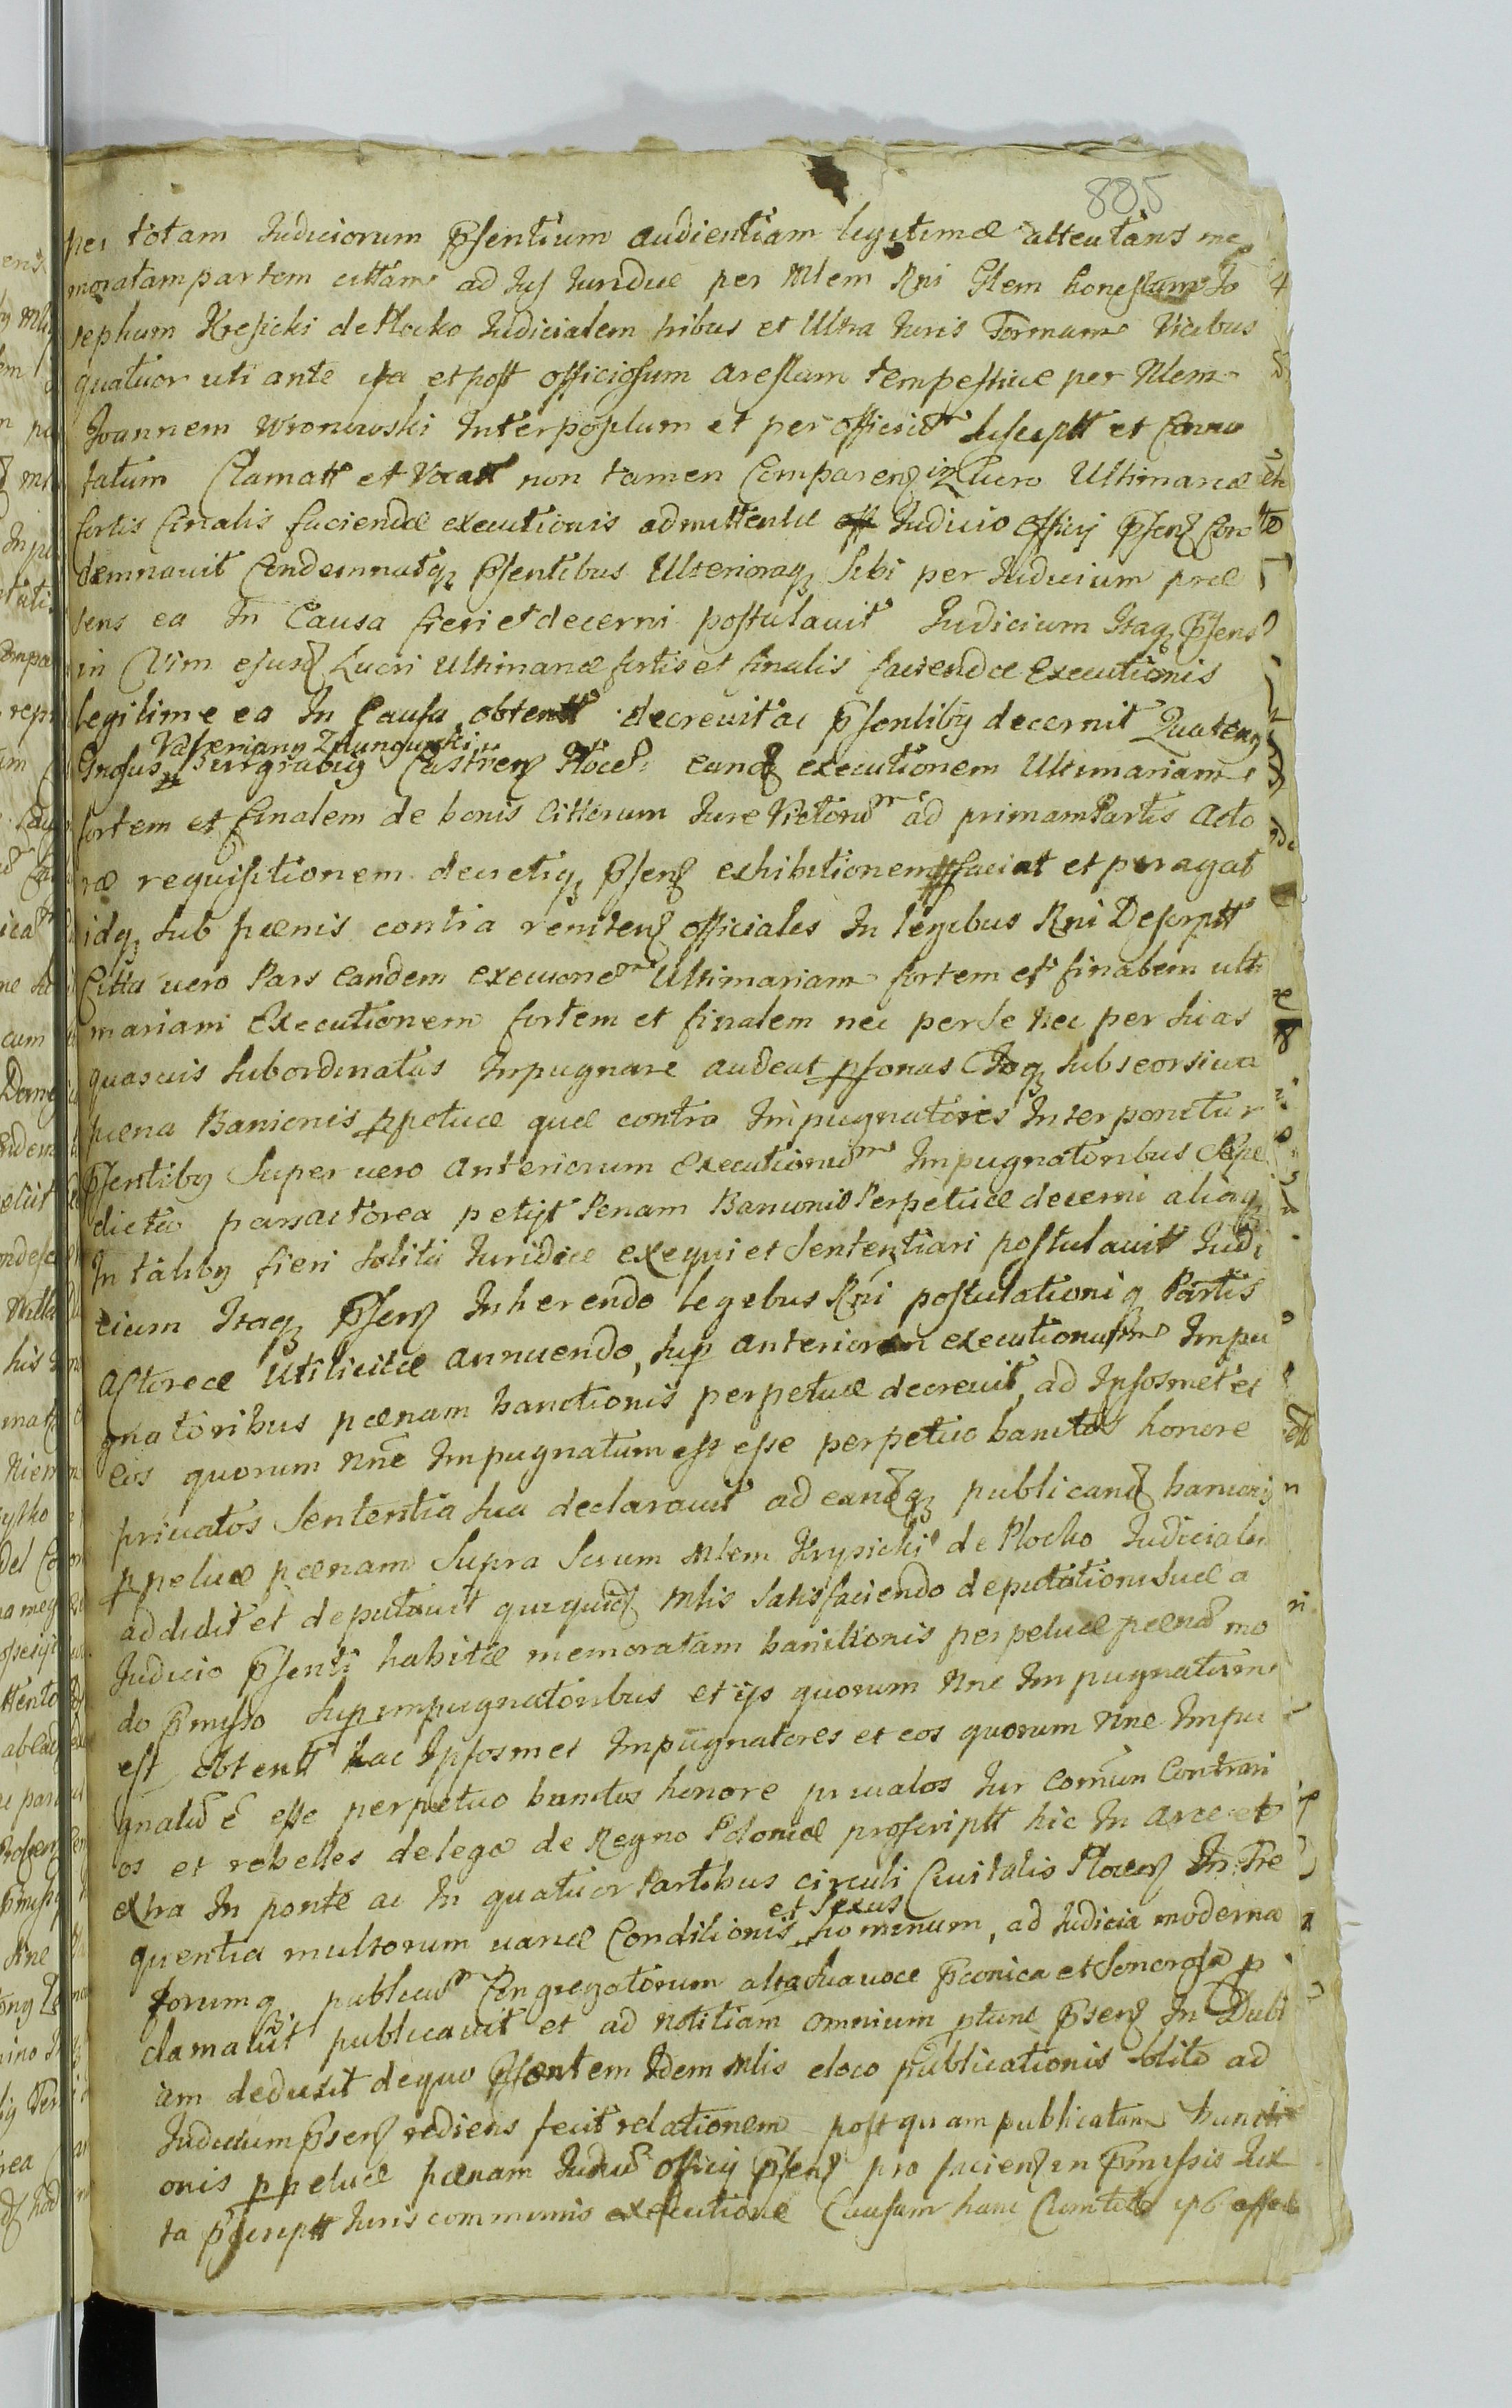 885
per totam Judiciorum Psentium audientiam legitimæ attentans me
moratam partem cittam ad Jus Juridice per Mlem Rni Glem honestum Jo
sephum Kresicki de Plocko Judicialem tribus et Ultra Juris Formam Vicibus
quatuor uti ante ita et post officiosum arestum tempestive per Mlem
Joannem Wronowski Interpositum et per officium Susceptt et Conno
tatum Clamatt et Vocatt non tamen Comparenz in Lucro Ultimariæ
fortis finalis faciendæ executionis admittendæ Judicio officij Psenz Con
demnavit Condemnatqz Psentibus Ulterioraqz Sibi per Judicium præ
sens ea In Causa fieri et decerni postulavit Judicium Itaqz Psens
in Vim ejusd Lucri Ultimariæ fortis et finalis faciendæ Executionis
legitime ea In Causa obtentt decrevit ac Psentiby decernit Quatenz
Valerianz
Gnosus Burgrabiy Castrenz Ploce eand executionem Ultimariam
fortem et finalem de bonis Cittorum Jure Victorum ad primam Partis Acto
ræ requisitionem decretiqz Psenz exhibitionem faciat et peragat
idqz Sub pænis contra renitenz officiales In legibus Rni Descriptt
Citta vero Pars eandem execuonem Ultimariam fortem et finalem ulti
mariam Executionem fortem et finalem nec per Se nec per Suas
quasvis Subordinatas Impugnare audeat psonas Idqz Sub seorsiva
pæna Banionis ppetuæ quæ contra Impugnatores Interponitur
Psentiby Super vero anteriorum Executionum Impugnatoribus Sæpe
dicta pars actorea petijt Penam Banionis Perpetuæ decerni aliaqz
In taliby fieri Solita Juridice exequi et Sententiari postulavit Judi
cium Itaqz Psenz Inherendo legibus Rni postulationiq Partis
Actoreæ Utilicitæ annuendo, Sup anteriorum executionum Impu
gnatoribus pænam banitionis perpetuæ decrevit, ad Ipsosmet et
eos quorum nne Impugnatum est esse perpetuo banitos honore
privatos Sententia Sua declaravit ad eandqz publicand banionis
ppetuæ pænam Supra Scrum Mlem Krysicki de Plocko Judicialem
addidit et deputavit quiquid Mlis Satisfaciendo deputationi Suæ a
Judicio Psenti habitæ memoratam banitionis perpetuæ pænam mo
do Pmisso Sup impugnatoribus et ijs quorum nne Impugnatum
est obtentt hac Ipsosmet Impugnatores et eos quorum nne Impu
gnatum e esse perpetuo banitos honore privatos Jur Comun Contrari
os et rebelles de lege de Regno Poloniæ proscriptt hic In arce et
extra In ponte ac In quatuor Partibus circuli Civitatis Plocenz In Fre
quentia multorum variæ Conditionis et Sexus hominum, ad Judicia moderna
forumq publicum Congregatorum alta Sua voce Pconica et Sonorosa p
clamavit publicavit et ad notitiam omnium ptunc Psenz In Dubi
am deduxit de quo Psentem Idem Mlis e loco publicationis solito ad
Judicium Psenz rediens fecit relationem post quam publicatam baniti
onis ppetuæ pænam Judicium officij Psenz pro facienz in Pmissis Jux
ta Pscriptt Juris communis executione Causam hanc Cum toto